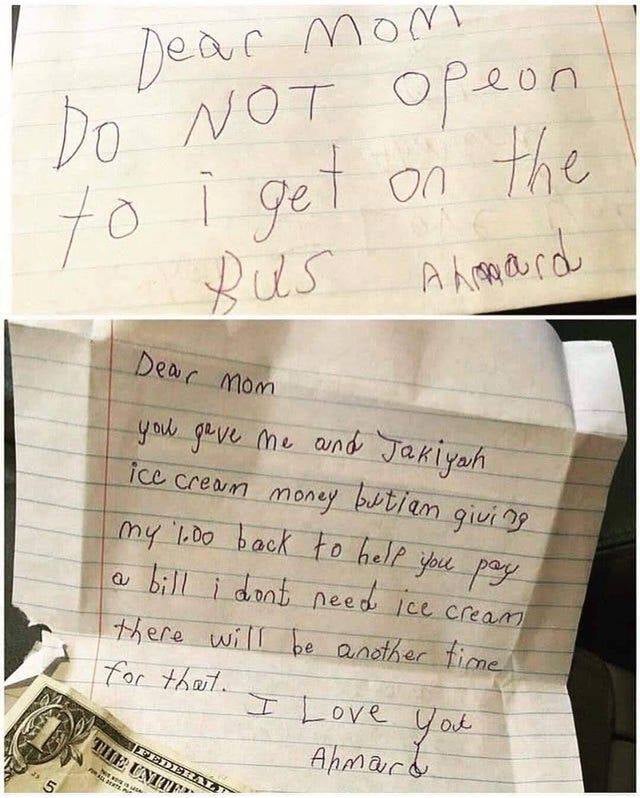 Dear Mom
Do NOT opeon
to i get on the
BUS Ahmard
Dear Mom
you gave me and Jakiyah
ice cream money but iam giving
my 1.00 back to help you pay
a bill i dont need ice cream
there will be another time
for that.
I Love you
Ahmard
FEDERAL
THE UNITE
5